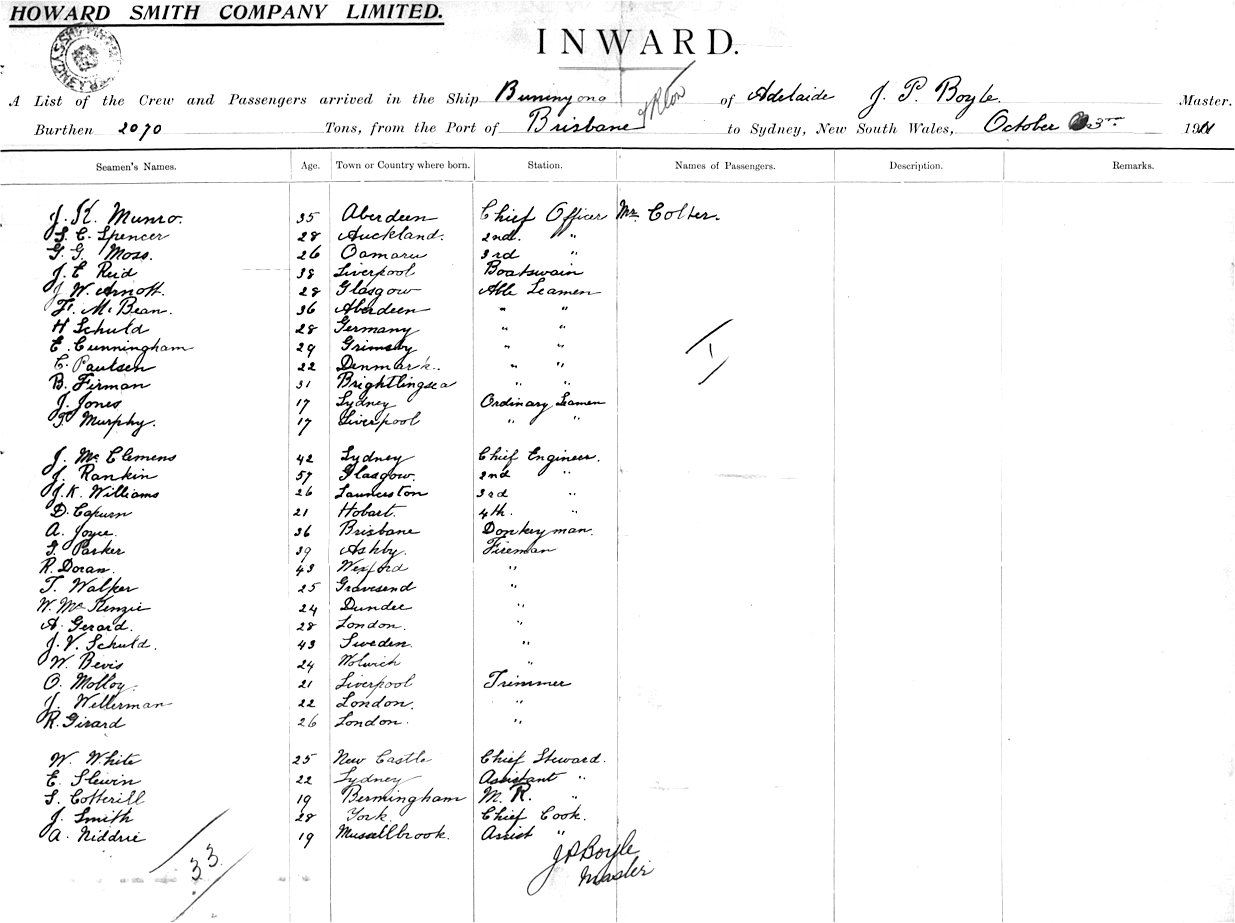 HOWARD SMITH COMPANY LIMITED.
INWARD.
A List of the Crew and Passengers arrived in the Ship Buninyong of Adelaide J. P. Boyle. Master.
Burthen 2070 Tons, from the Port of Brisbane to Sydney, New South Wales, October 3rd 1911
Seamen's Names. Age. Town or Country where born. Station. Names of Passengers. Description. Remarks.
J. K. Munro. 35 Aberdeen Chief Officer Mr. Colter.
S. C. Spencer 28 Auckland. 2nd. "
G. G. Moss. 26 Oamaru 3rd "
J. E Reid 38 Liverpool Boatswain
J W. Arnott. 28 Glasgow Able Seamen
F. McBean. 36 Aberdeen " "
H Schuld 28 Germany " "
E. Cunningham 29 Grimsby " "
C. Paulsen 22 Denmark. " "
B. Firman 31 Brightlingsea " "
J. Jones 17 Sydney Ordinary Seamen
T. Murphy. 17 Liverpool " "
I
J. McClemens 42 Sydney Chief Engineer.
J. Rankin 57 Glasgow. 2nd "
J. K. Williams 26 Launceston 3rd "
D. Capurn 21 Hobart. 4th. "
A. Joyce. 36 Brisbane Donkeyman.
G. Parker 39 Ashby. Fireman
R. Doran. 43 Wexford "
T. Walker 25 Gravesend "
W. McKenzie 24 Dundee "
A. Gerard. 28 London. "
J. V. Schuld. 43 Sweden. "
W. Bevis 24 Wolwich "
O. Molloy. 21 Liverpool Trimmer
J. Wellerman 22 London. "
R. Girard 26 London. "
W. White 25 New Castle Chief Steward.
E. Slewin 22 Sydney Assistant "
S. Cotterill 19 Bermingham M. R. "
J. Smith 28 York. Chief Cook.
A. Niddrie 19 Musellbrook. Assist "
33
J P Boyle
Master